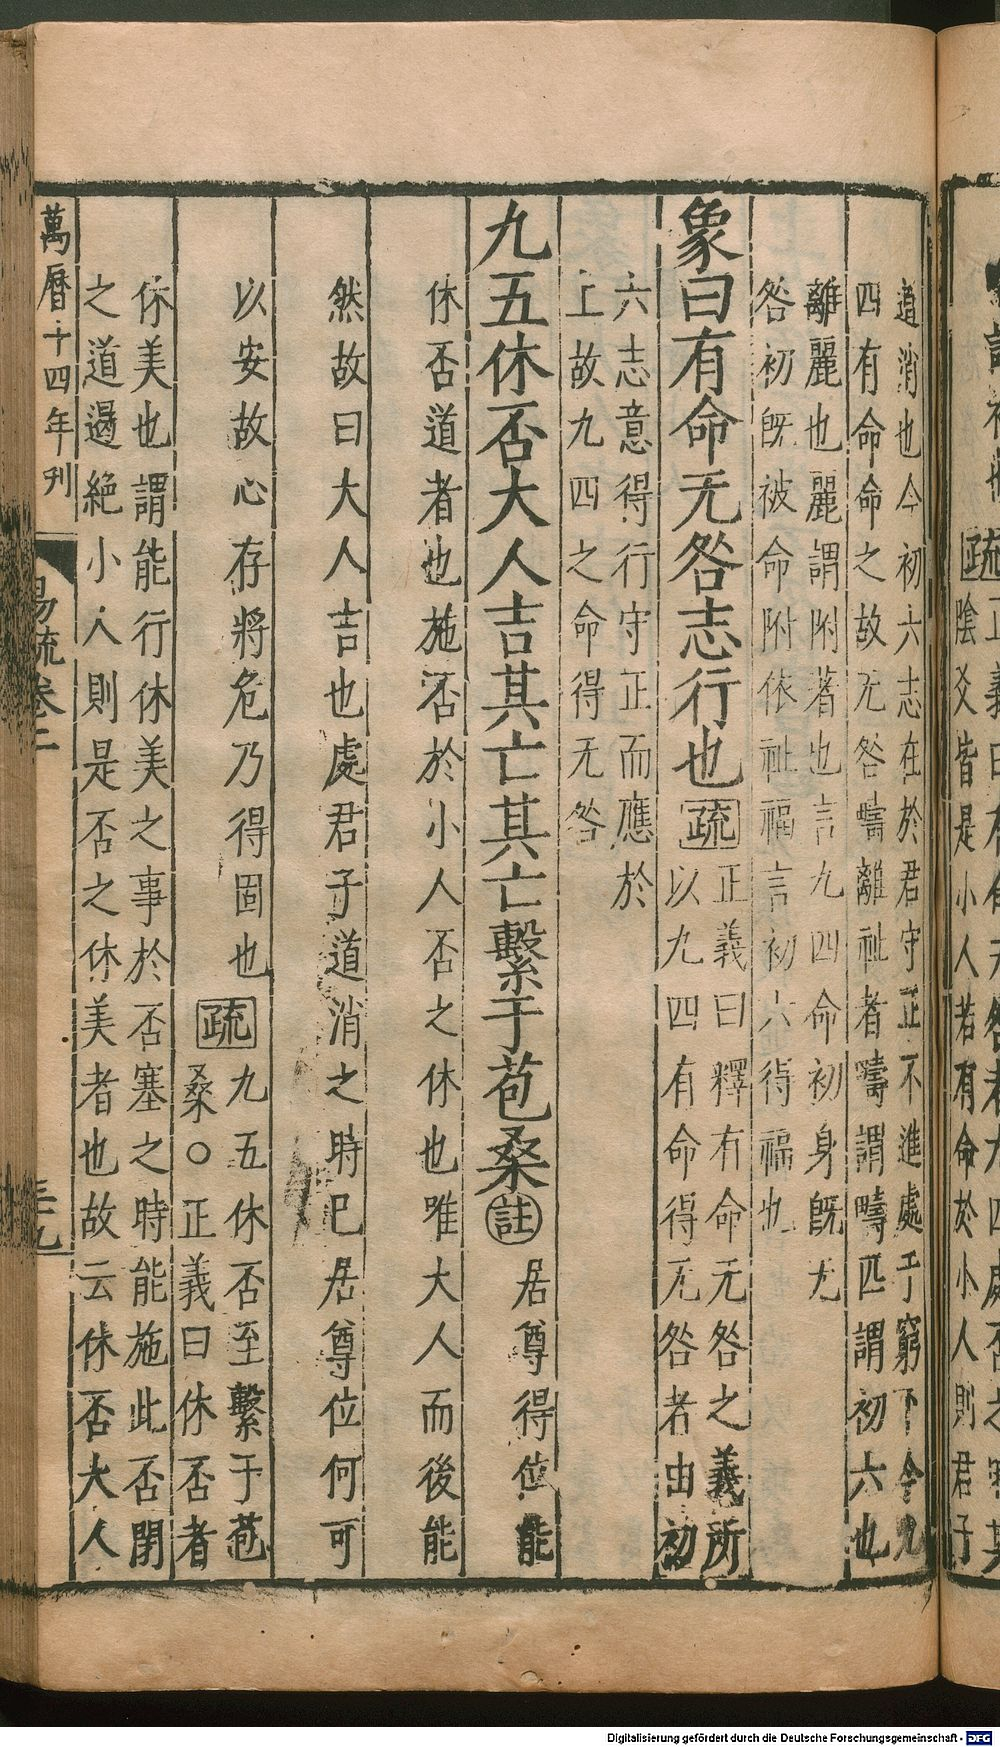 道消也今初六志在於君守正不進處于窮下今九
四有命命之故无咎疇離祉者疇謂疇匹謂初六也
離麗也麗謂附著也言九四命初身旣无
咎初旣被命附依祉福言初六得福也
象曰有命无咎志行也疏正義曰釋有命无咎之義所
以九四有命得无咎者由初
六志意得行守正而應於
上故九四之命得无咎
九五休否大人吉其亡其亡繫于苞桑註居尊得位能
休否道者也施否於小人否之休也唯大人而後能
然故曰大人吉也處君子道消之時己居尊位何可
以安故心存將危乃得固也疏九五休否至繫于苞
桑○正義曰休否者
休美也謂能行休美之事於否塞之時能施此否閉
之道遏絶小人則是否之休美者也故云休否大人
萬曆十四年刋
易疏卷二
三九
Digitalisierung gefördert durch die Deutsche Forschungsgemeinschaft - DFG